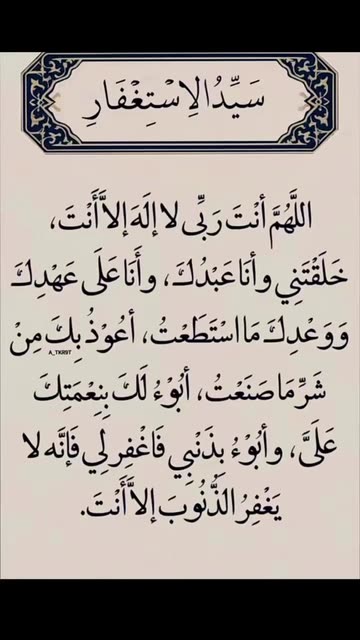 سَيِّدُ الِاسْتِغْفَارِ
اللَّهُمَّ أنْتَ رَبِّى لا إلَهَ إلاَّ أَنْتَ،
خَلَقْتَنِي وأنَا عَبْدُكَ، وأَنَا عَلَى عَهْدِكَ
وَوَعْدِكَ مَا اسْتَطَعْتُ، أعُوْذُ بِكَ مِنْ
A_TKR9T
شَرِّ مَا صَنَعْتُ، أبُوْءُ لَكَ بِنِعْمَتِكَ
عَلَىَّ، وأبُوْءُ بِذَنْبِي فَاغْفِر لِي فَإنَّه لا
يَغْفِرُ الذُّنُوبَ إلاَّ أَنْتَ.